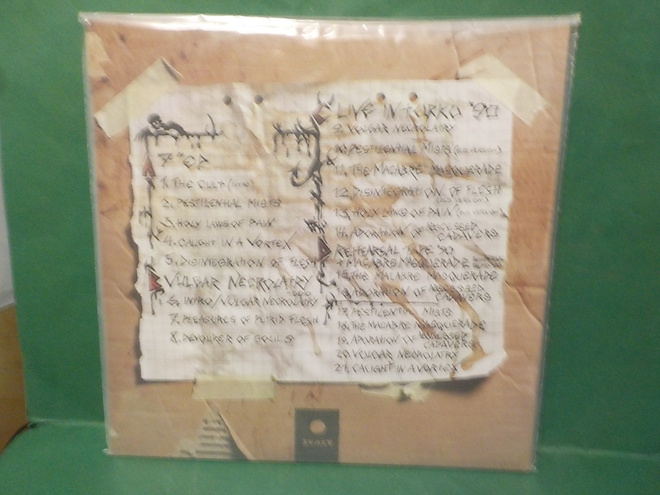 7" EP
1. THE CULT (INTRO)
2. PESTILENTIAL MISTS
3. HOLY LUNG OF PAIN
4. CAUGHT IN A VORTEX
5. DISINTEGRATION OF FLESH
VULGAR NECROLATRY
6. INTRO/VULGAR NECROLATRY
7. PLEASURES OF PUTRID FLESH
8. DEVOURER OF SOULS
LIVE IN TURKU '90
9. VULGAR NECROLATRY
10. PESTILENTIAL MISTS
11. THE MACABRE MASQUERADE
12. DISINTEGRATION OF FLESH
13. HOLY LUNG OF PAIN
14. ADORATION OF CADAVERS
REHEARSAL TAPE '90
15. THE MACABRE MASQUERADE
16. ADORATION OF CADAVERS
17. PESTILENTIAL MISTS
18. THE MACABRE MASQUERADE
19. ADORATION OF CADAVERS
20. VULGAR NECROLATRY
21. CAUGHT IN A VORTEX